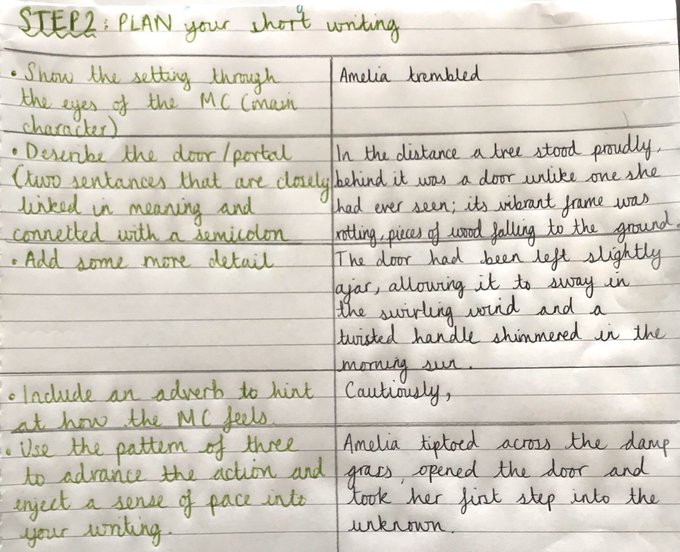 STEP2: PLAN your short writing
• Show the setting through
the eyes of the MC (main
character)
Amelia trembled
• Describe the door/portal
(two sentances that are closely
linked in meaning and
connetted with a semicolon
In the distance a tree stood proudly,
behind it was a door unlike one she
had ever seen; its vibrant frame was
rotting, pieces of wood falling to the ground.
• Add some more detail
The door had been left slightly
ajar, allowing it to sway in
the swirling wind and a
twisted handle shimmered in the
morning sun.
• Include an adverb to hint
at how the MC feels
Cautiously,
• Use the pattern of three
to advance the action and
inject a sense of pace into
your writing.
Amelia tiptoed across the damp
grass, opened the door and
took her first step into the
unknown.